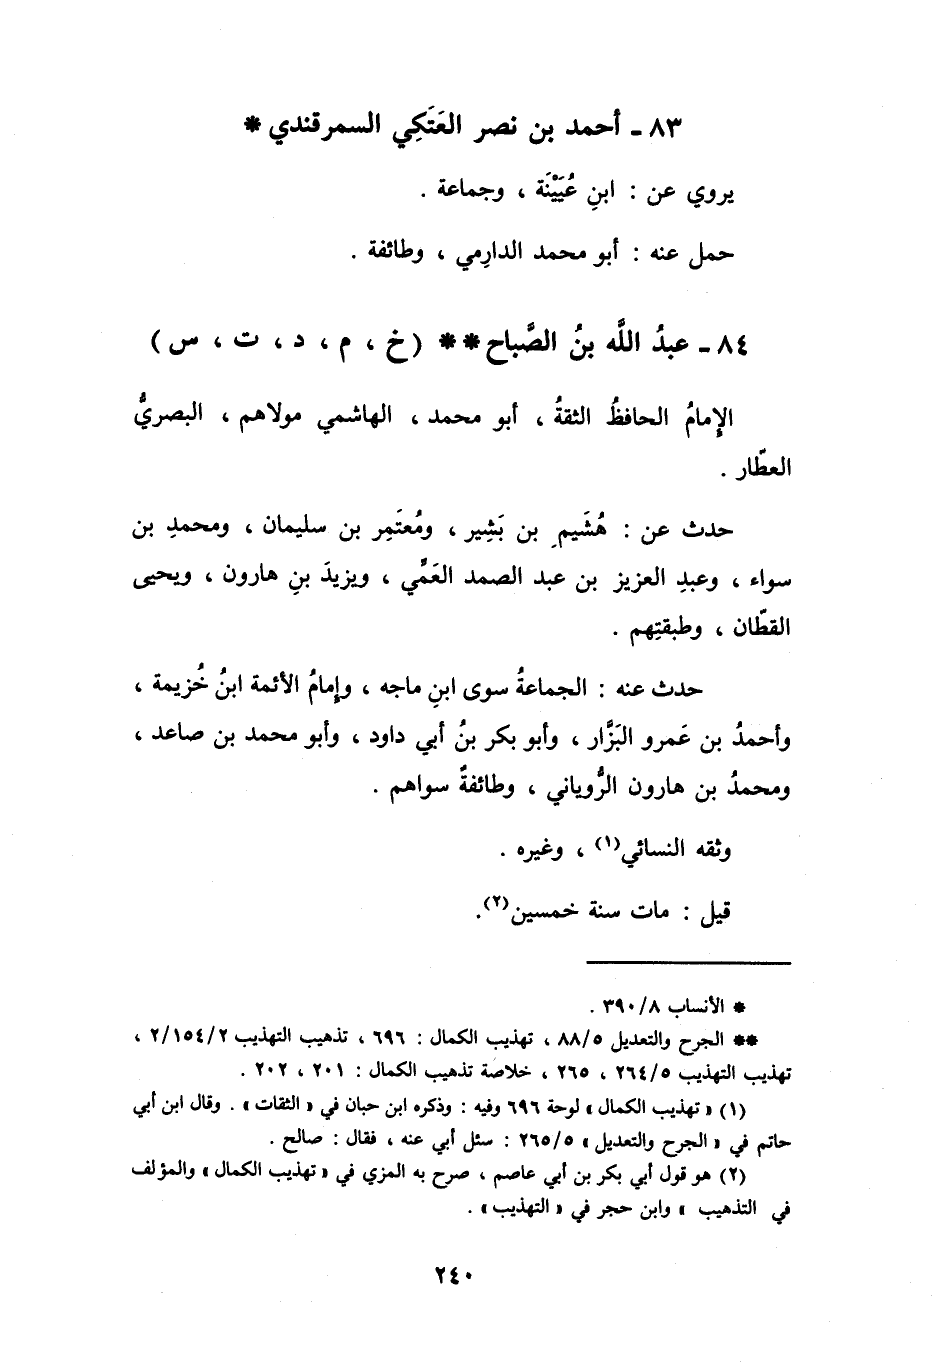 ٨٣ ـ أحمد بن نصر العَتَكِي السمرقندي *
يروي عن : ابنِ عُيَيْنَة ، وجماعة .
حمل عنه : أبو محمد الدارِمي ، وطائفة .
٨٤ ـ عبدُ اللَّه بنُ الصَّباح ** ( خ ، م ، د ، ت ، س )
الإِمامُ الحافظُ الثقةُ ، أبو محمد ، الهاشمي مولاهم ، البصريُّ
العطّار .
حدث عن : هُشَيمِ بن بَشِير ، ومُعتَمِر بن سليمان ، ومحمدِ بن
سواء ، وعبدِ العزيز بن عبد الصمد العَمِّي ، ويزيدَ بنِ هارون ، ويحيى
القطّان ، وطبقتِهم .
حدث عنه : الجماعةُ سوى ابنِ ماجه ، وإمامُ الأئمة ابنُ خُزيمة ،
وأحمدُ بن عَمرو البَزَّار ، وأبو بكر بنُ أبي داود ، وأبو محمد بن صاعد ،
ومحمدُ بن هارون الرُّوياني ، وطائفةٌ سواهم .
وثقه النسائي(١) ، وغيره .
قيل : مات سنة خمسين(٢).
* الأنساب ٣٩٠/٨ .
** الجرح والتعديل ٨٨/٥ ، تهذيب الكمال : ٦٩٦ ، تذهيب التهذيب ٢/١٥٤/٢ ،
تهذيب التهذيب ٢٦٤/٥ ، ٢٦٥ ، خلاصة تذهيب الكمال : ٢٠١ ، ٢٠٢ .
(١) « تهذيب الكمال » لوحة ٦٩٦ وفيه : وذكره ابن حبان في « الثقات » . وقال ابن أبي
حاتم في « الجرح والتعديل » ٢٦٥/٥ : سئل أبي عنه ، فقال : صالح .
(٢) هو قول أبي بكر بن أبي عاصم ، صرح به المزي في « تهذيب الكمال » والمؤلف
في التذهيب » وابن حجر في « التهذيب » .
٢٤٠